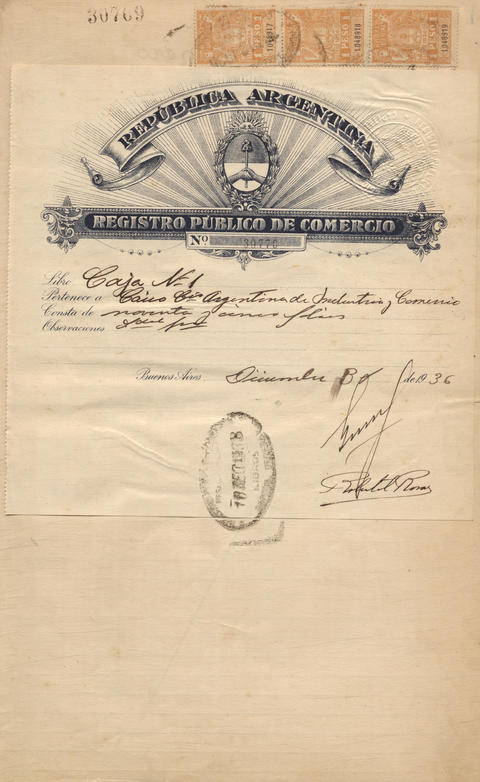 30769
1 PESO 1
1048917
1 PESO 1
1048918
1 PESO 1
1048919
REPÚBLICA ARGENTINA
REGISTRO PÚBLICO DE COMERCIO
Nº 30770
Libro Caja Nº 1
Pertenece a Cía Argentina de Industria y Comercio
Consta de noventa y cinco folios
Observaciones
Buenos Aires, Diciembre de 1936
LIBROS